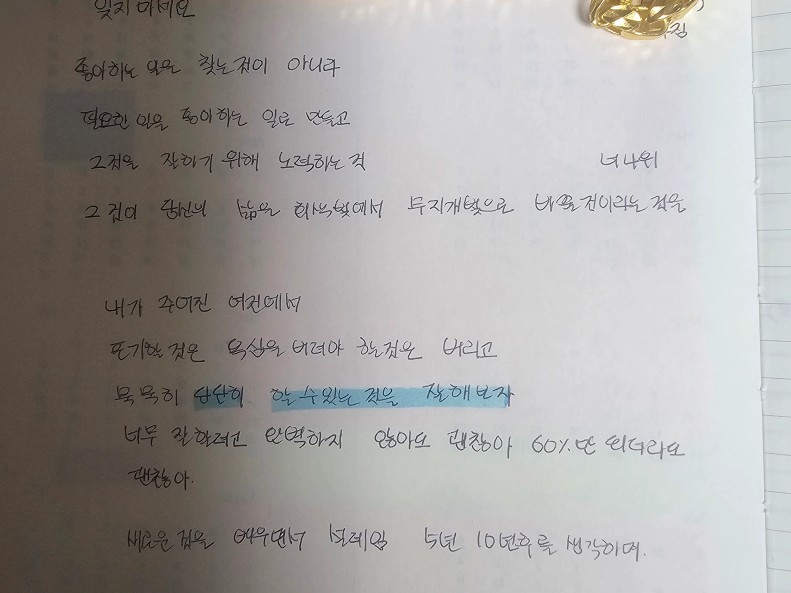 잊지마세요
좋아하는 일을 찾는것이 아니라
필요한 일을 좋아하는 일로 만들고
그것을 잘하기 위해 노력하는 것 너나위
그것이 당신의 삶을 회색빛에서 무지개빛으로 바꿀것이라는 것을
내가 주어진 여건에서
포기할 것은 욕심을 버려야 할것은 버리고
묵묵히 단단히 할 수 있는 것을 잘해보자
너무 잘할려고 완벽하지 않아도 괜찮아 60%만 되더라도
괜찮아.
새로운 것을 배우면서 설레임 5년 10년후를 생각하며.